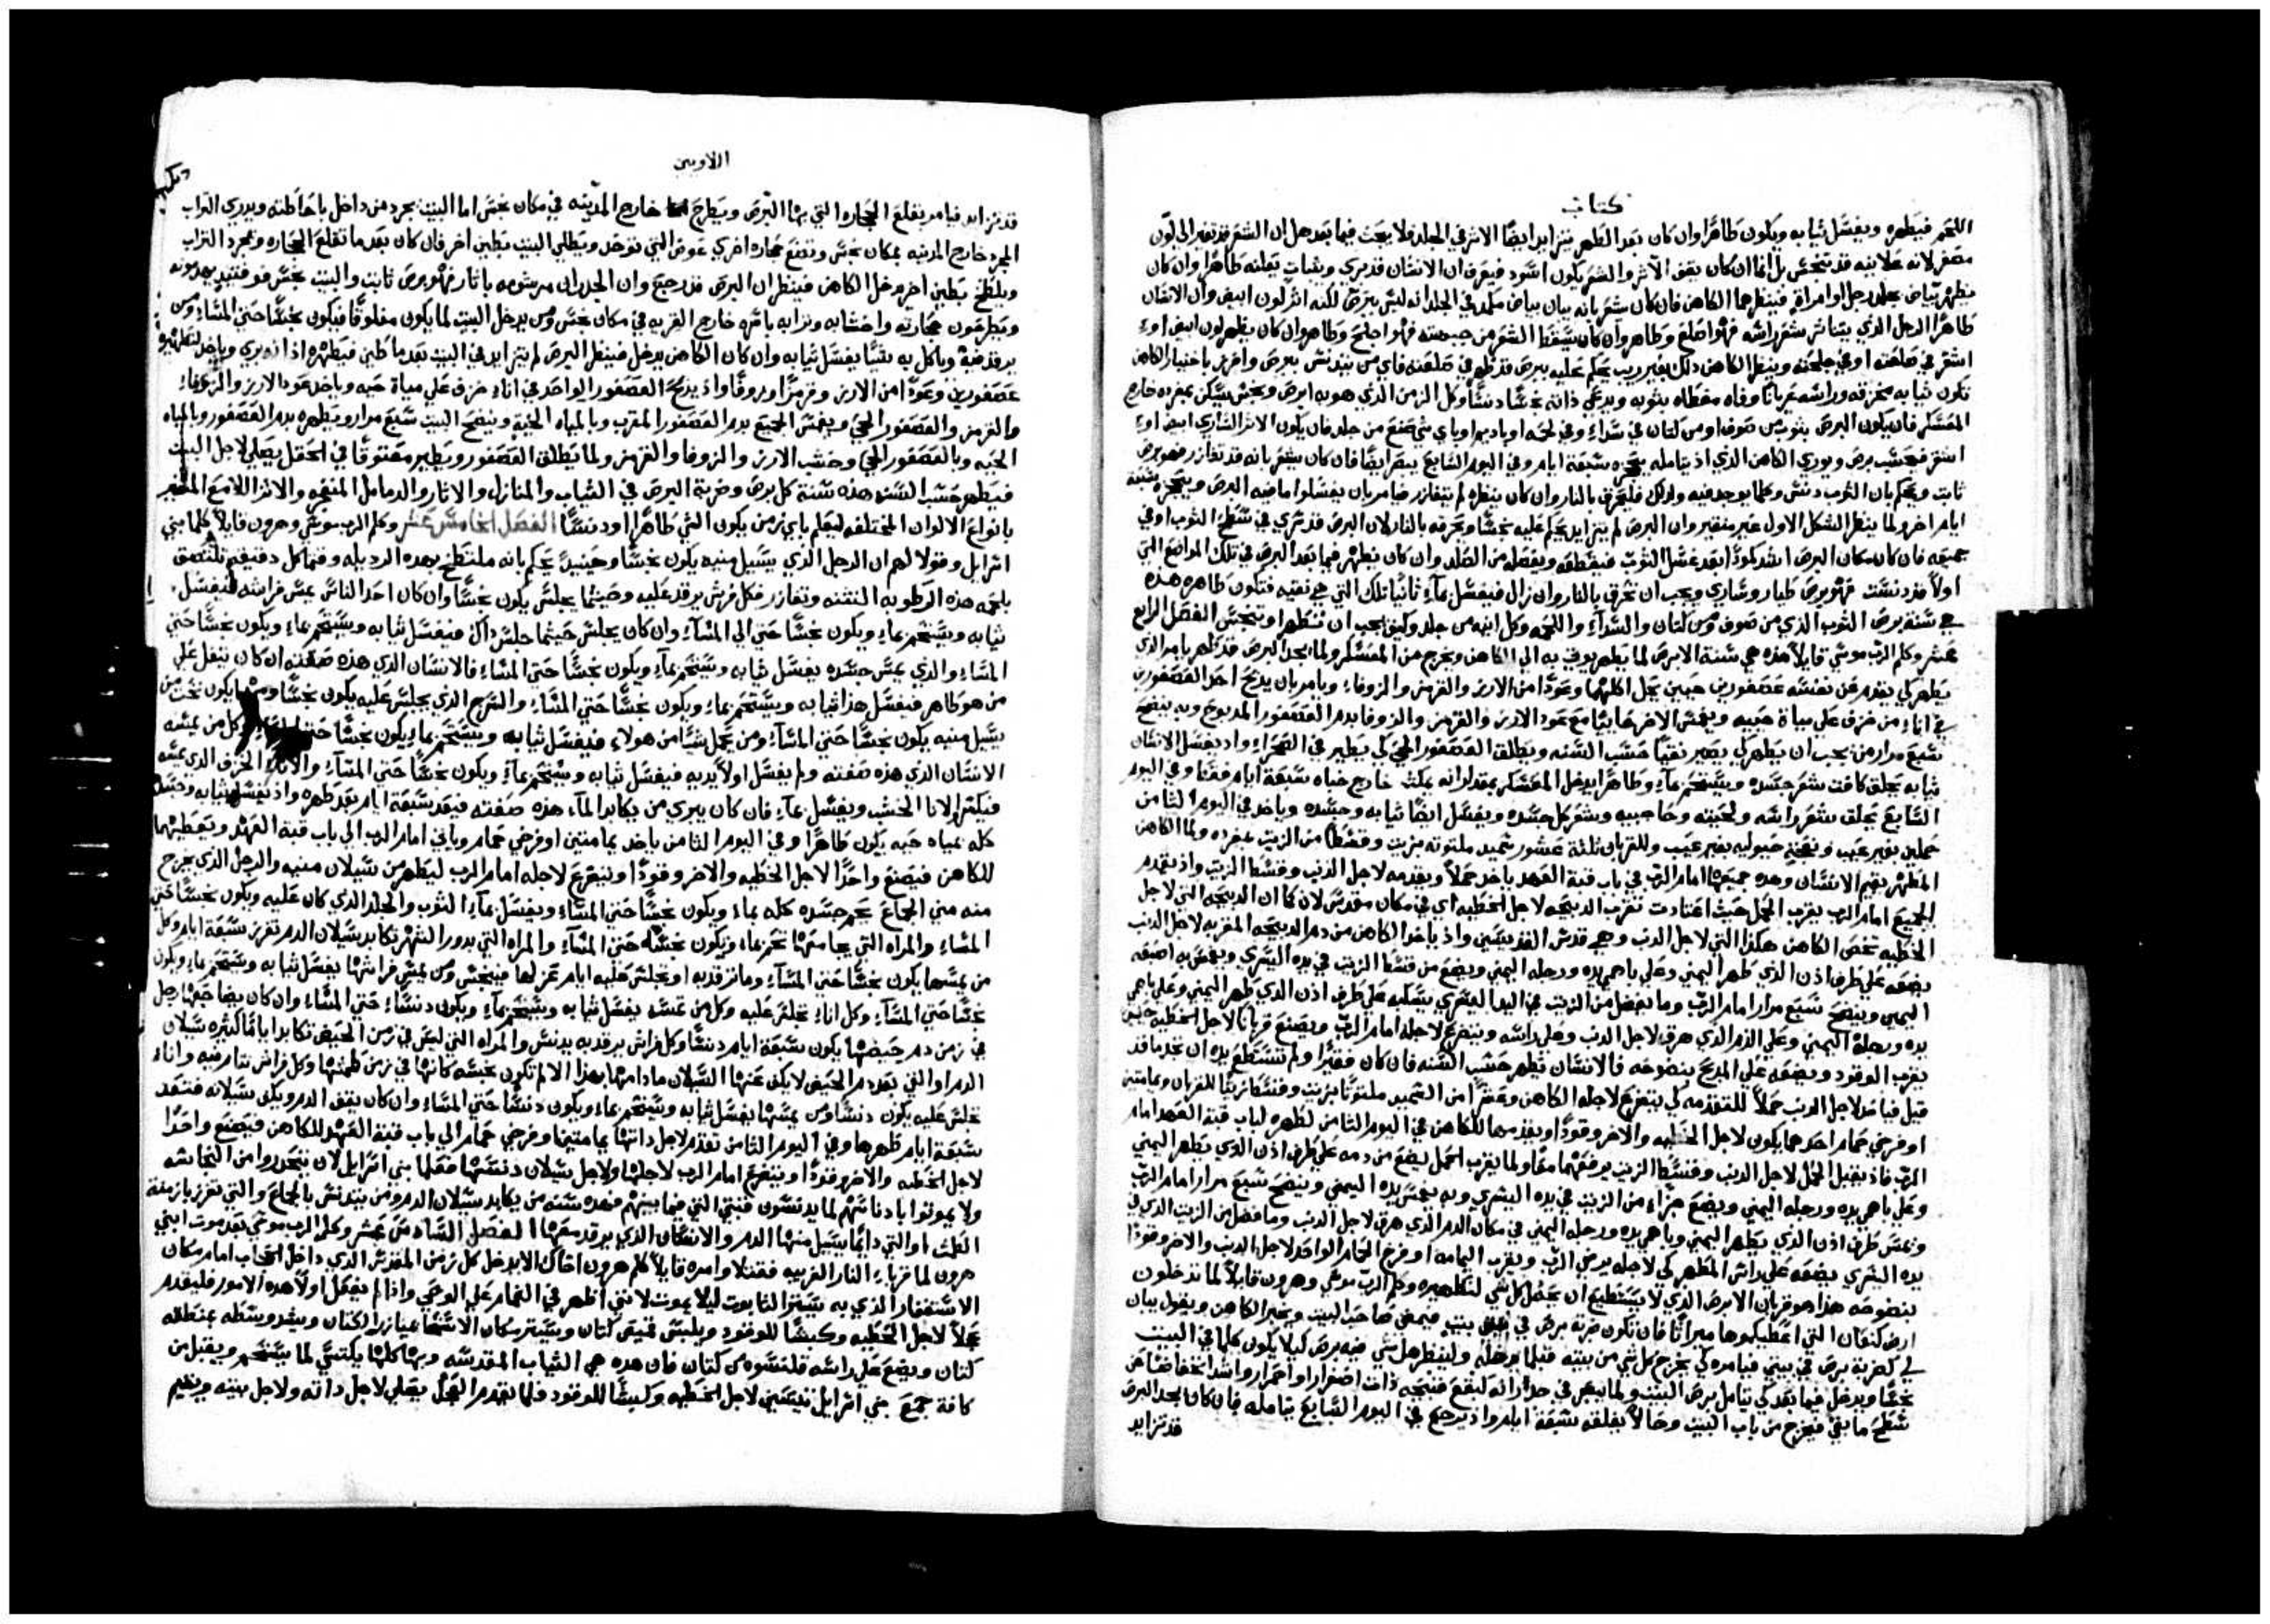 كتاب
اللحم فيطهره ويغسل ثيابه ويكون طاهرًا وان كان بعد الطهر يتزايد ايضًا الاثر في الجلد فلا يبحث فيما بعد هل ان الشعر قد تغير الى لون
مصفر لانه علانيه قد تنجس بل انما ان كان يقف الاثر والشعر يكون اسود فيعرف ان الانسان قد بري وبثبات يعلنه طاهرًا وان كان
يظهر بياض بجلد رجل او امراة فينظرهما الكاهن فان كان
طاهرًا الرجل الذي يتناثر شعر راسه فهو اصلع وطاهر وان كان يسقط الشعر من جبهته فهو اجلح وطاهر وان كان يظهر لون ابيض او
اشقر في صلعته او في جلحته وينظر الكاهن ذلك بغير ريب يحكم عليه ببرص قد ظهر في صلعته فاي من يتدنس ببرص وافرز باختيار الكاهن
تكون ثيابه مخزقه وراسه عريانًا وفاه مغطاه بثوبه ويدعي ذاته نجسًا دنسًا وكل الزمن الذي هو به ابرص ونجس يسكن بمفرده خارج
المعسكر فان يكون البرص بثوب من صوف او من كتان في سداء وفي لحمه او باديم او باي شي صنع من جلد فان يكون الاثر الساري ابيض او
اشقر فيحسب برص ويوري الكاهن الذي اذ يتامله يحجره سبعة ايام وفي اليوم السابع يبصر ايضًا فان كان يشعر بانه قد تغازر فهو برص
ثابت ويحكم بان الثوب دنس وكلما يوجد فيه ولذلك فليحرق بالنار وان كان ينظره لم يتغازر فيامر بان يغسلوا ما فيه البرص ويحجره سبعة
ايام اخر ولما ينظر الشكل الاول غير متغير وان البرص لم يتزايد يحكم عليه نجسًا ويحرقه بالنار لان البرص قد سري في سطح الثوب او في
جميعه فان كان مكان البرص اشد كمودًا بعد غسل الثوب فيقطعه ويفصله من الصلد وان كان يظهر فيما بعد البرص في تلك المواضع التي
اولًا قد دنست فهو برص طيار وساري ويجب ان تحرق بالنار وان زال فيغسل بماءٍ ثانيًا تلك التي هي نقيه فتكون طاهره هذه
هي سنة برص الثوب الذي من صوف ومن كتان والسداء واللحمه وكل انيه من جلد وكيف يجب ان تتطهر او تتنجس الفصل الرابع
عشر وكلم الرب موسي قايلًا هذه هي سنة الابرص لما يطهر يوتي به الي الكاهن ويخرج من المعسكر ولما يجد البرص قد طهر يامر الذي
يطهر كي يقدم عن نفسه عصفورين حيين يحل اكلهما وعودًا من الارز والقرمز والزوفاء ويامر بان يذبح احد العصفورين
في اناءٍ من خزف على مياة حييه ويغمس الاخر حيًا مع عود الارز والقرمز والزوفا بدم العصفور المذبوح وبه ينضح
سبع مرار من يجب ان يطهر كي يصير نقيًا حسب السنه ويطلق العصفور الحي كي يطير في الصحراء واذ يغسل الانسان
ثيابه يحلق كافت شعر جسده ويستحم بماءٍ وطاهرًا يدخل المعسكر بعد لوانه يمكث خارج خباه سبعة ايام فقط وفي اليوم
السابع يحلق شعر راسه ولحيته وحاجبيه وشعر كل جسده ويغسل ايضًا ثيابه وجسده وياخذ في اليوم الثامن
حملين بغير عيب ونعجة حيوليه بغير عيب وللقربان ثلثة عشور سميد ملتوته بزيت وقسطًا من الزيت بمفرده ولما الكاهن
المطهر يقيم الانسان وهذه جميعها امام الرب في باب قبة العهد ياخذ حملًا ويقدمه لاجل الذنب وقسط الزيت واذ يقدم
الجميع امام الرب يقرب الحمل حيث اعتادت تقرب الذبيحه لاجل الخطيه اي في مكان مقدس لان كما ان الذبيحه التي لاجل
الخطيه تخص الكاهن هكذا التي لاجل الذنب وهي قدس القديسين واذ ياخذ الكاهن من دم الذبيحه المقربه لاجل الذنب
يضعه علي طرف اذن الذي طهر اليمني وعلي باهمي يده ورجله اليمني ويضع من قسط الزيت في يده اليسري ويغمس به اصبعه
اليمين وينضح سبع مرار امام الرب وما يفضل من الزيت في اليد اليسري يسكبه علي طرف اذن الذي طهر اليمني وعلي باهمي
يده ورجله اليمني وعلي الدم الذي هرق لاجل الذنب وعلي راسه ويتضرع لاجله امام الرب ويصنع قربانًا لاجل الخطيه حينيذ
يقرب الوقود ويضعه علي المذبح بنضوحه فالانسان يطهر حسب السنه فان كان فقيرًا ولم تستطع يده ان تجد ما قد
قيل فياخذ لاجل الذنب حملًا للتقدمه كي يتضرع لاجله الكاهن وعشرًا من السميد ملتوتًا بزيت وقسطا زيتًا للقربان ويمامتين
او فرخي حمام احدهما يكون لاجل الخطيه والاخر وقودًا ويقدمهما للكاهن في اليوم الثامن لطهره لباب قبة العهد امام
الرب فاذ يقبل الحمل لاجل الذنب وقسط الزيت يرفعهما معًا ولما يقرب الحمل يضع من دمه علي طرف اذن الذي يطهر اليمني
وعلي باهمي يده ورجله اليمني ويضع جزاء من الزيت في يده اليسري وبه يغمس يده اليمني وينضح سبع مرار امام الرب
ويمس طرف اذن الذي يطهر اليمني وباهمي يده ورجله اليمني في مكان الدم الذي هرق لاجل الذنب وما فضل من الزيت الذي في
يده اليسري يضعه علي راس المطهر كي لاجله يرضي الرب ويقرب اليمامه او فرخ الحمام الواحد لاجل الذنب والاخر وقودًا
بنضوحه هذا هو قربان الابرص الذي لا يستطيع ان يحصل كل شي لتطهيره وكلم الرب موسي وهرون قايلًا لما تدخلون
ارض كنعان التي اعطيكموها ميراثًا فان تكون ضربة برص في بيتٍ فيمضي صاحب البيت ويخبر الكاهن ويقول بيان
لي كضربة برص في بيتي فيامره كي يخرج كل شي من بيته قبلما يدخله ولينظر هل شي فيه برص كيلا يكون كلما في البيت
نجسًا ويدخل فيما بعد كي يتامل برص البيت ولما يبصر في جدرانه
سطح ما بقي فيخرج من باب البيت وحالًا يغلقه سبعة ايام واذ يرجع في اليوم السابع يتامله فان كان يجد البرص
قد تزايد
اللاويين
قد تزايد فيامر بقلع الحجاره التي بها البرص ويطرح خارج المدينه في مكان نجس اما البيت يجرد من داخل باحاطته ويدري التراب
المجرد خارج المدينه بمكان نجس وتوضع حجاره اخري عوض التي توخذ ويطلي البيت بطين اخر فان كان بعد ما تقلع الحجاره ويجرد التراب
ويلطخ بطين اخر يدخل الكاهن فينظر ان البرص قد رجع وان الجدران مرشومه باثار فهو برص ثابت والبيت نجس
ويطرحون حجارته واخشابه وترابه باسره خارج القريه في مكان نجس ومن يدخل البيت لما يكون مغلوقًا فيكون نجسًا حتي المساء ومن
يرقد فيه وياكل به شيًا يغسل ثيابه وان كان الكاهن يدخل فينظر البرص لم يتزايد في البيت بعد ما طين فيطهره اذ انه بري وياخذ لتطهيره
عصفورين وعودًا من الارز وقرمزًا وزوفًا واذ يذبح العصفور الواحد في اناءٍ خزف علي مياة حيه وياخذ عود الارز والزوفاء
والقرمز والعصفور الحي ويغمس الجميع بدم العصفور المقرب وبالمياه الحية وينضح البيت سبع مرار ويطهره بدم العصفور وبالمياه
الحيه وبالعصفور الحي وخشب الارز والزوفا والقرمز ولما يطلق العصفور ويطير معتوقًا في الحقل يصلي لاجل البيت
فيطهر حسب السنه هذه سنة كل برص وضربة البرص في الثياب والمنازل والاثار والدمامل المنفجره والاثر اللامع المتغير
بانواع الالوان المختلفه ليعلم باي زمن يكون الشي طاهرًا او دنسًا الفصل الخامس عشر وكلم الرب موسي وهرون قايلًا كلما بني
اسرايل وقولا لهم ان الرجل الذي يسيل منيه يكون نجسًا وحينيذ يحكم بانه ملتطخ بهذه الرذيله
بلحمه هذه الرطوبه النتنه وتغازر فكل فرش يرقد عليه وحيثما يجلس يكون نجسًا وان كان احد الناس يمس فراشه فيغسل
ثيابه ويستحم بماءٍ ويكون نجسًا حتي الي المساء وان كان يجلس حيثما جلس ذاك فيغسل ثيابه ويستحم بماءٍ ويكون نجسًا حتي
المساء والذي يمس جسده يغسل ثيابه ويستحم بماءٍ ويكون نجسًا حتي المساء فالانسان الذي هذه صفته ان كان يتفل علي
من هو طاهر فيغسل هذا ثيابه ويستحم بماءٍ ويكون نجسًا حتي المساء والسرج الذي يجلس عليه يكون نجسًا
يسيل منيه يكون نجسًا حتي المساء ومن يحمل شيًا من هولاء فيغسل ثيابه ويستحم بماءٍ يكون نجسًا حتي المساء وكل من يمسه
الانسان الذي هذه صفته ولم يغسل اولًا يديه فيغسل ثيابه ويستحم بماءٍ ويكون نجسًا حتي المساء والاناء الخزف الذي يمسه
فيكسر الانا الخشب ويغسل بماءٍ فان كان يبري من يكابد الماء هذه صفته فيعد سبعة ايام بعد طهره واذ يغسل ثيابه وجسده
كله بمياه حيه يكون طاهرًا وفي اليوم الثامن ياخذ يمامتين او فرخي حمام وياتي امام الرب الي باب قبة العهد ويعطيهما
للكاهن فيصنع واحدًا لاجل الخطيه والاخر وقودًا ويتضرع لاجله امام الرب ليطهر من سيلان منيه والرجل الذي يخرج
منه مني الجماع يحم جسده كله بماء ويكون نجسًا حتي المساء ويغسل بماءٍ الثوب والجلد الذي كان عليه ويكون نجسًا حتي
المساء والمراه التي يجامعها تحم بماء وتكون نجسه حتي المساء والمراه التي بدور الشهر تكابد سيلان الدم تفرز سبعة ايام وكل
من يمسها يكون نجسًا حتي المساء وما ترقد به او تجلس عليه ايام تعزلها فينجس ومن يمس فراشها يغسل ثيابه ويستحم بماءٍ ويكون
نجسًا حتي المساء وكل اناءٍ تجلس عليه وكل من يمسه يغسل ثيابه ويستحم بماءٍ ويكون دنسًا حتي المساء وان كان يضاجعها رجل
في زمن دم حيضها يكون سبعة ايام دنسًا وكل فراش يرقد به يدنس والمراه التي ليس في زمن الحيض تكابد ايامًا كثيره سيلان
الدم او التي بعد دم الحيض لا يكف عنها السيلان ما دامها بهذا الالم تكون نجسه كانها في زمن طمثها وكل فراش تنام فيه واناء
تجلس عليه يكون دنسًا ومن يمسها يغسل ثيابه ويستحم بماء ويكون دنسًا حتي المساء وان كان يقف الدم ويكف سيلانه فتعد
سبعة ايام طهرها وفي اليوم الثامن تقدم لاجل ذاتها يمامتين او فرخي حمام الي باب قبة العهد للكاهن فيصنع واحدًا
لاجل الخطيه والاخر وقودًا ويتضرع امام الرب لاجلها ولاجل سيلان دنسها فعلما بني اسرايل لان يتحذروا من النجاسه
ولا يموتوا بادناسهم لما يدنسون قبتي التي فيما بينهم فهذه سنة من يكابد سيلان الدم ومن يتدنس بالجماع والتي تفرز بازمنة
الطمث او التي دايمًا يسيل منها الدم والانسان الذي يرقد معها الفصل السادس عشر وكلم الرب موسي بعد موت ابني
هرون لما قربا النار الغريبه فقتلا وامره قايلًا كلم هرون اخاك الا يدخل كل زمن المقدس الذي داخل الحجاب امام مكان
الاستغفار الذي به يستر التابوت ليلا يموت لانني اظهر في الغمام علي الوحي واذا لم يفعل اولًا هذه الامور فليقدم
عجلًا لاجل الخطيه وكبشًا للوقود ويلبس قميص كتان ويستر مكان الاستحيا بميازر الكتان ويشد وسطه بمنطقه
كتان ويضع علي راسه قلنسوه من كتان فان هذه هي الثياب المقدسه وبها كلها يكتسي لما يستحم ويقبل من
كافة جمع بني اسرايل تيسين لاجل الخطيه وكبشًا للوقود فلما يقدم العجل يصلي لاجل ذاته ولاجل بيته ويقيم